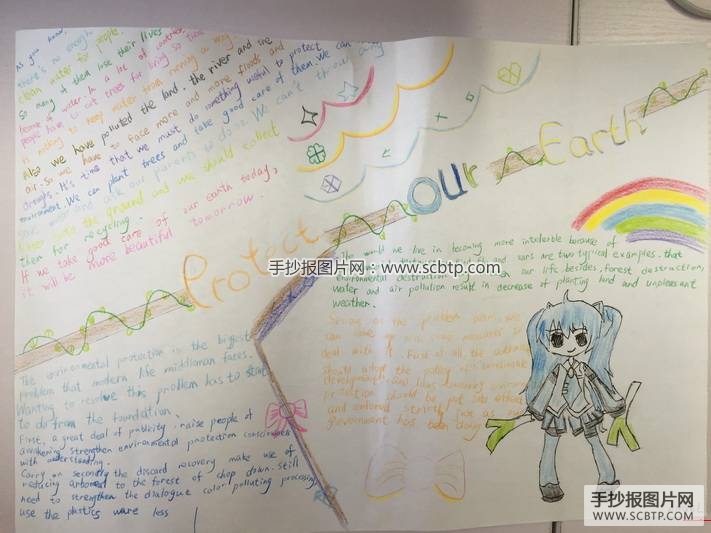 As you know,
there's no enough
clean water for people.
so many of them lose their lives
because of water. In a lot of countries,
people have to cut trees for living. So there
is nothing to keep water from running away.
Also we have polluted the land. the river and the
air. So we have to face more and more floods and
droughts. It's time that we must do something useful to protect
environment. We can plant trees and take good care of them. We can
save water and ask our parents to do so. We can't throw
litter onto the ground and we should collect
them for recycling.
If we take good care of our earth today,
it will be more beautiful tomorrow.
Protect our Earth
手抄报图片网：www.scbtp.com
The world we live in becoming more intolerable because of
environmental destruction are two typical examples. that
our life besides, forest destruction,
water and air pollution result in decrease of planting land and unpleasant
weather.
Seeing the problem
can some measures to
deal with it. First of all, the
should adopt the policy
development, and laws
protection should be put into effect
and enforced strictly just as
government has been doing.
The environmental protection is the biggest
problem that modern life middleman faces.
Wanting to resolve this problem has to start
to do from the foundation.
First, a great deal of publicity, raise people of
awakening, strengthen environmental protection consciousness
with understanding.
Carry on secondly the discard recovery make use of
reducing arboreal to the forest of chop down. Still
need to strengthen the dialogue color polluting processing,
use the plastics ware less
手抄报图片网
WWW.SCBTP.COM